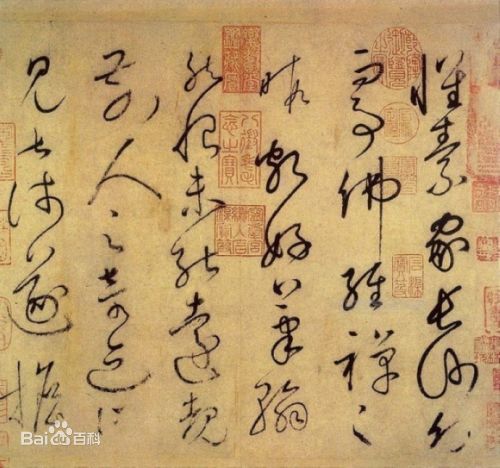 懷素家長沙幼
而事佛經禪之
暇頗好筆翰
然恨未能遠覩
前人之奇迹所
見甚淺遂擔
Bai百科